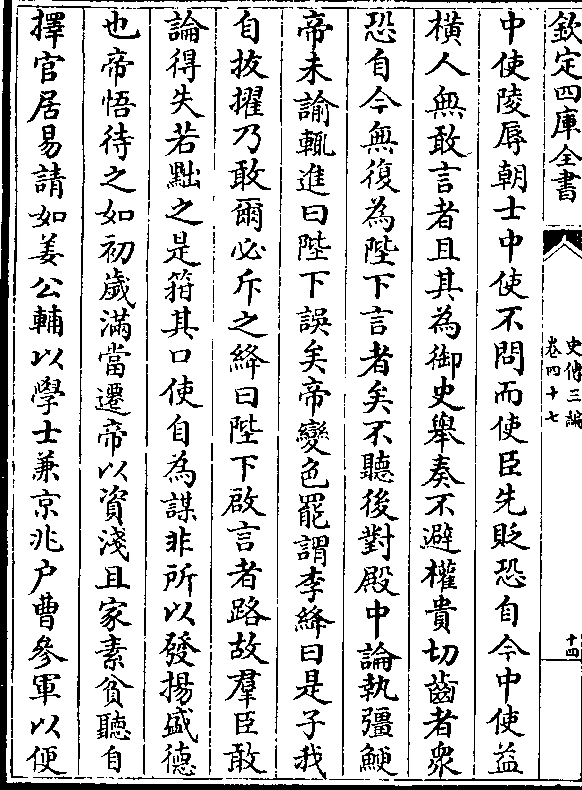 欽定四庫全書
史傳三編
卷四十七
十四
中使陵辱朝士中使不問而使臣先貶恐自今中使益
橫人無敢言者且其為御史舉奏不避權貴切齒者衆
恐自今無復為陛下言者矣不聽後對殿中論執彊鯁
帝未諭輒進曰陛下誤矣帝變色罷謂李絳曰是子我
自拔擢乃敢爾必斥之絳曰陛下啟言者路故羣臣敢
論得失若黜之是箝其口使自為謀非所以發揚盛德
也帝悟待之如初歲滿當遷帝以資淺且家素貧聽自
擇官居易請如姜公輔以學士兼京兆户曹參軍以便